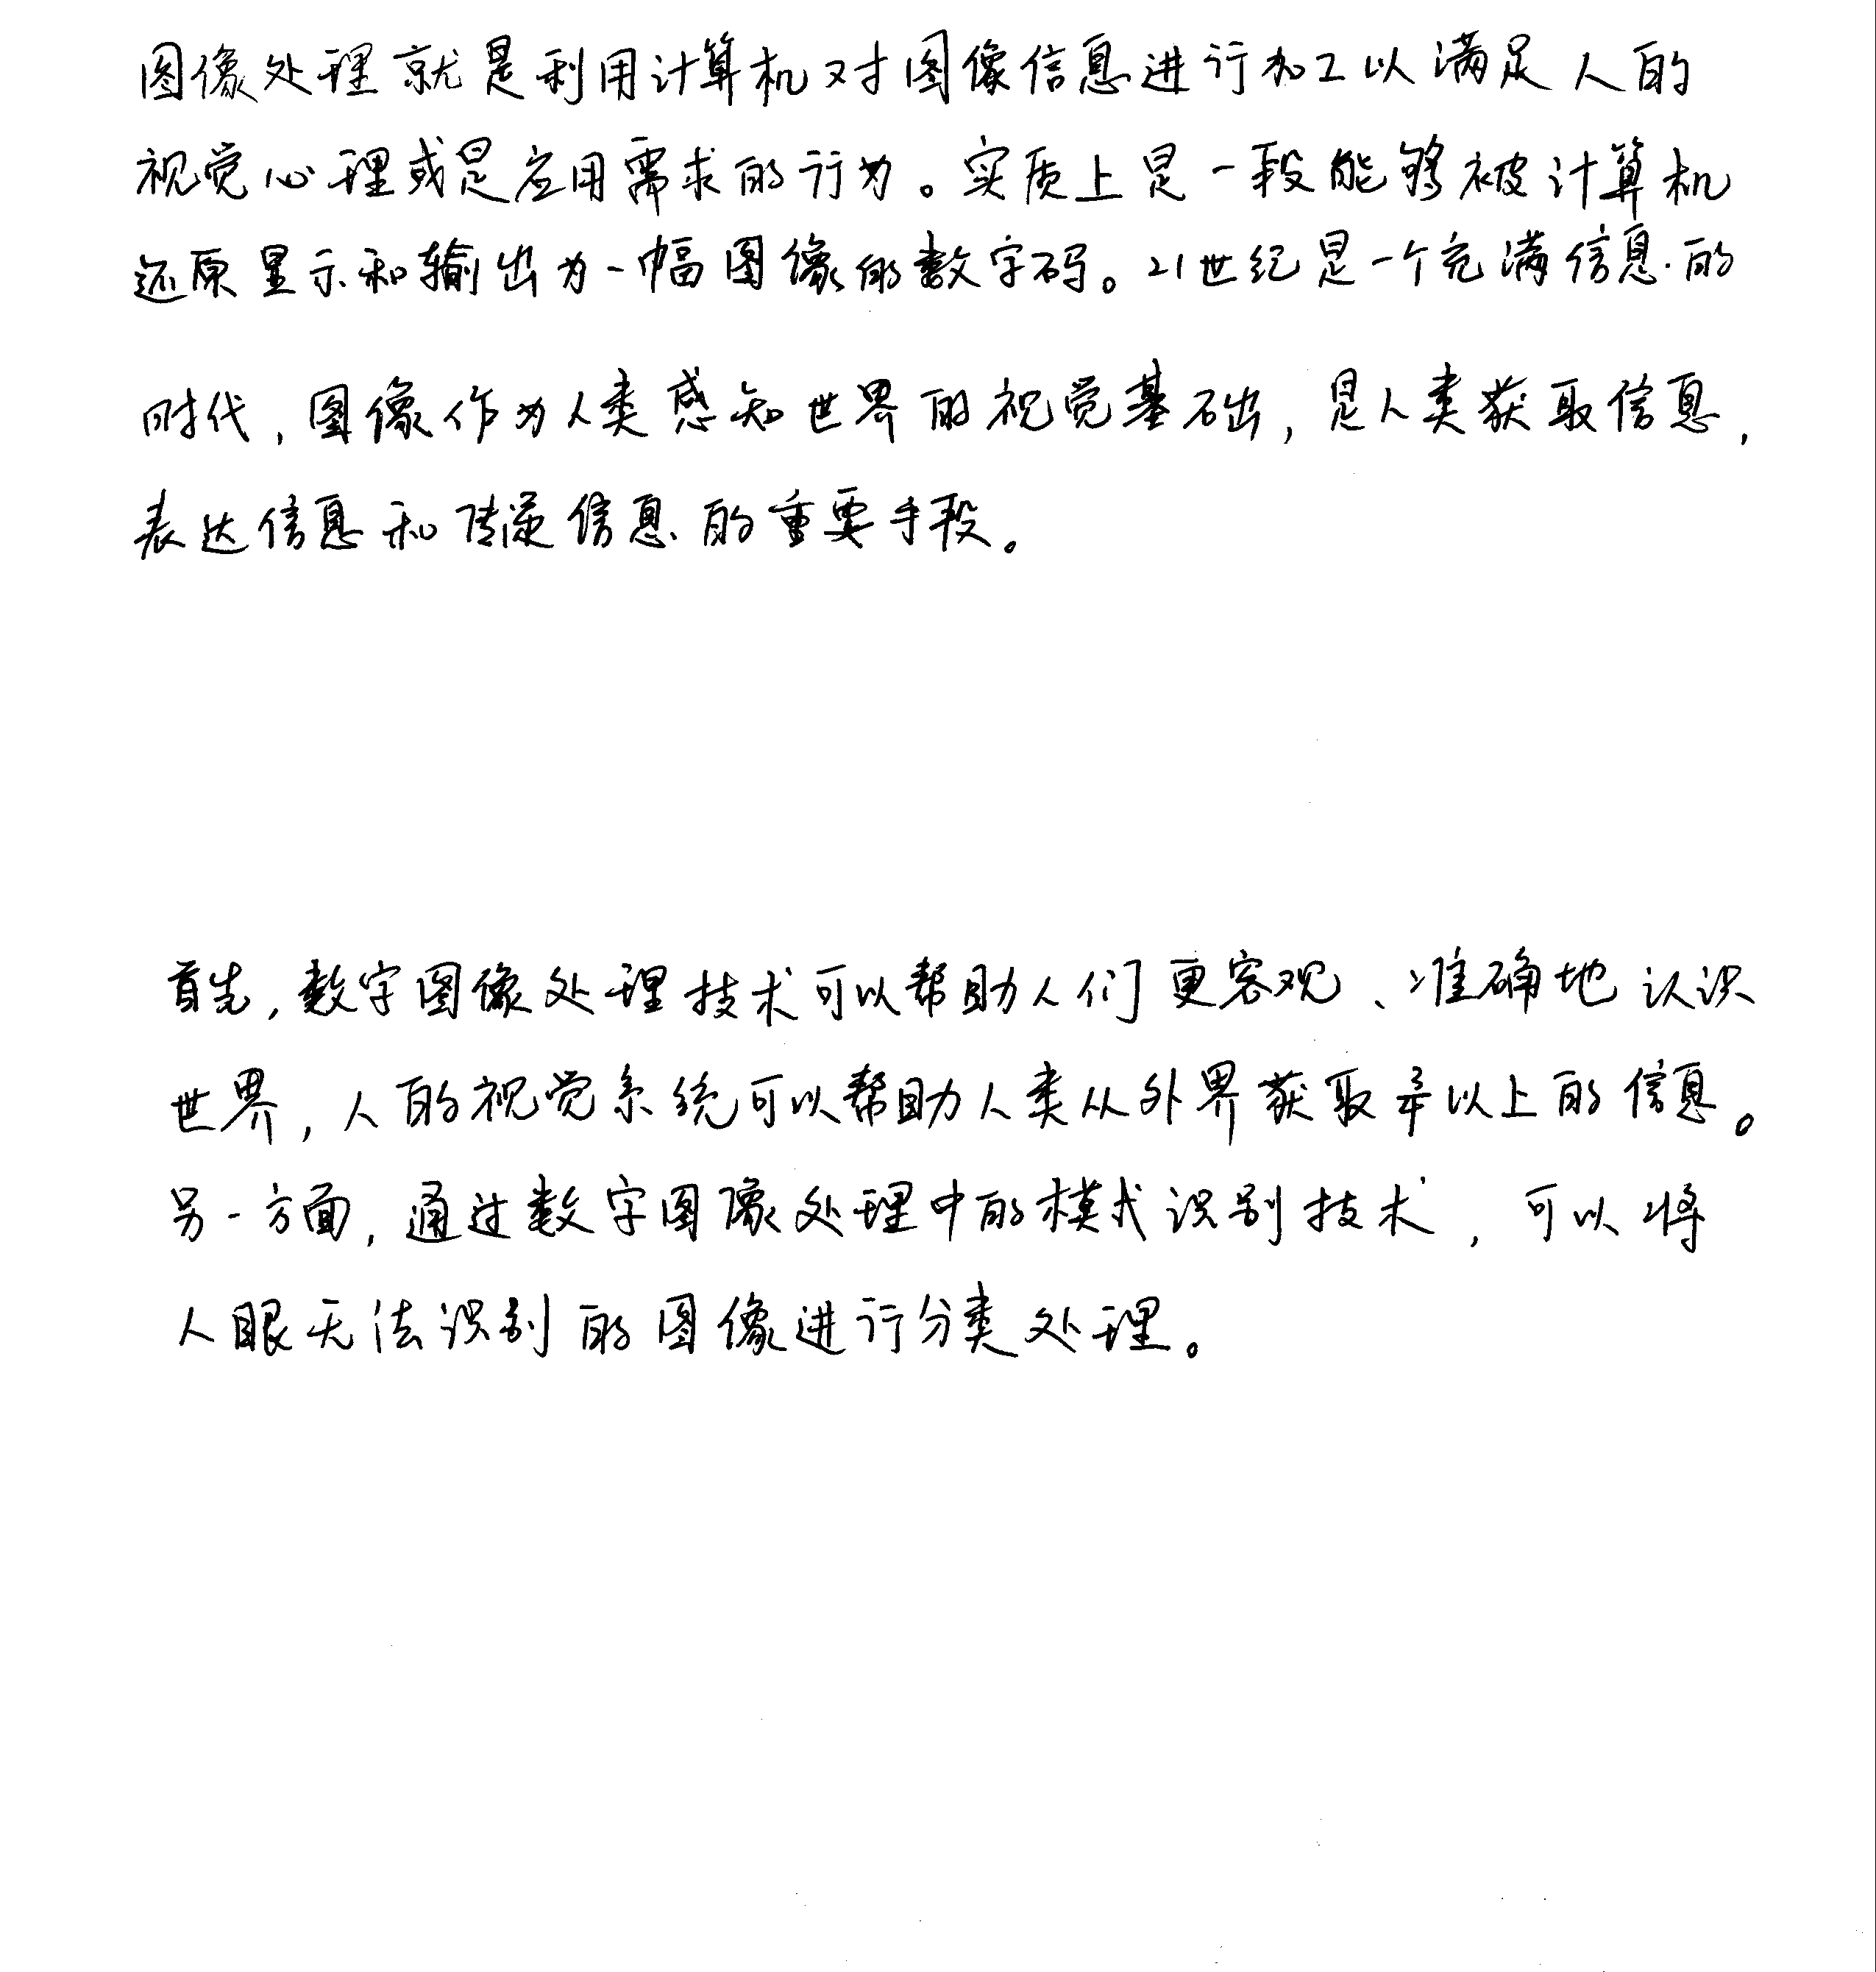 图像处理就是利用计算机对图像信息进行加工以满足人的
视觉心理或是应用需求的行为。实质上是一段能够被计算机
还原显示和输出为一幅图像的数字码。21世纪是一个充满信息的
时代,图像作为人类感知世界的视觉基础,是人类获取信息,
表达信息和传递信息的重要手段。
首先,数字图像处理技术可以帮助人们更客观、准确地认识
世界,人的视觉系统可以帮助人类从外界获取以上的信息。
另一方面,通过数字图像处理中的模式识别技术,可以将
人眼无法识别的图像进行分类处理。